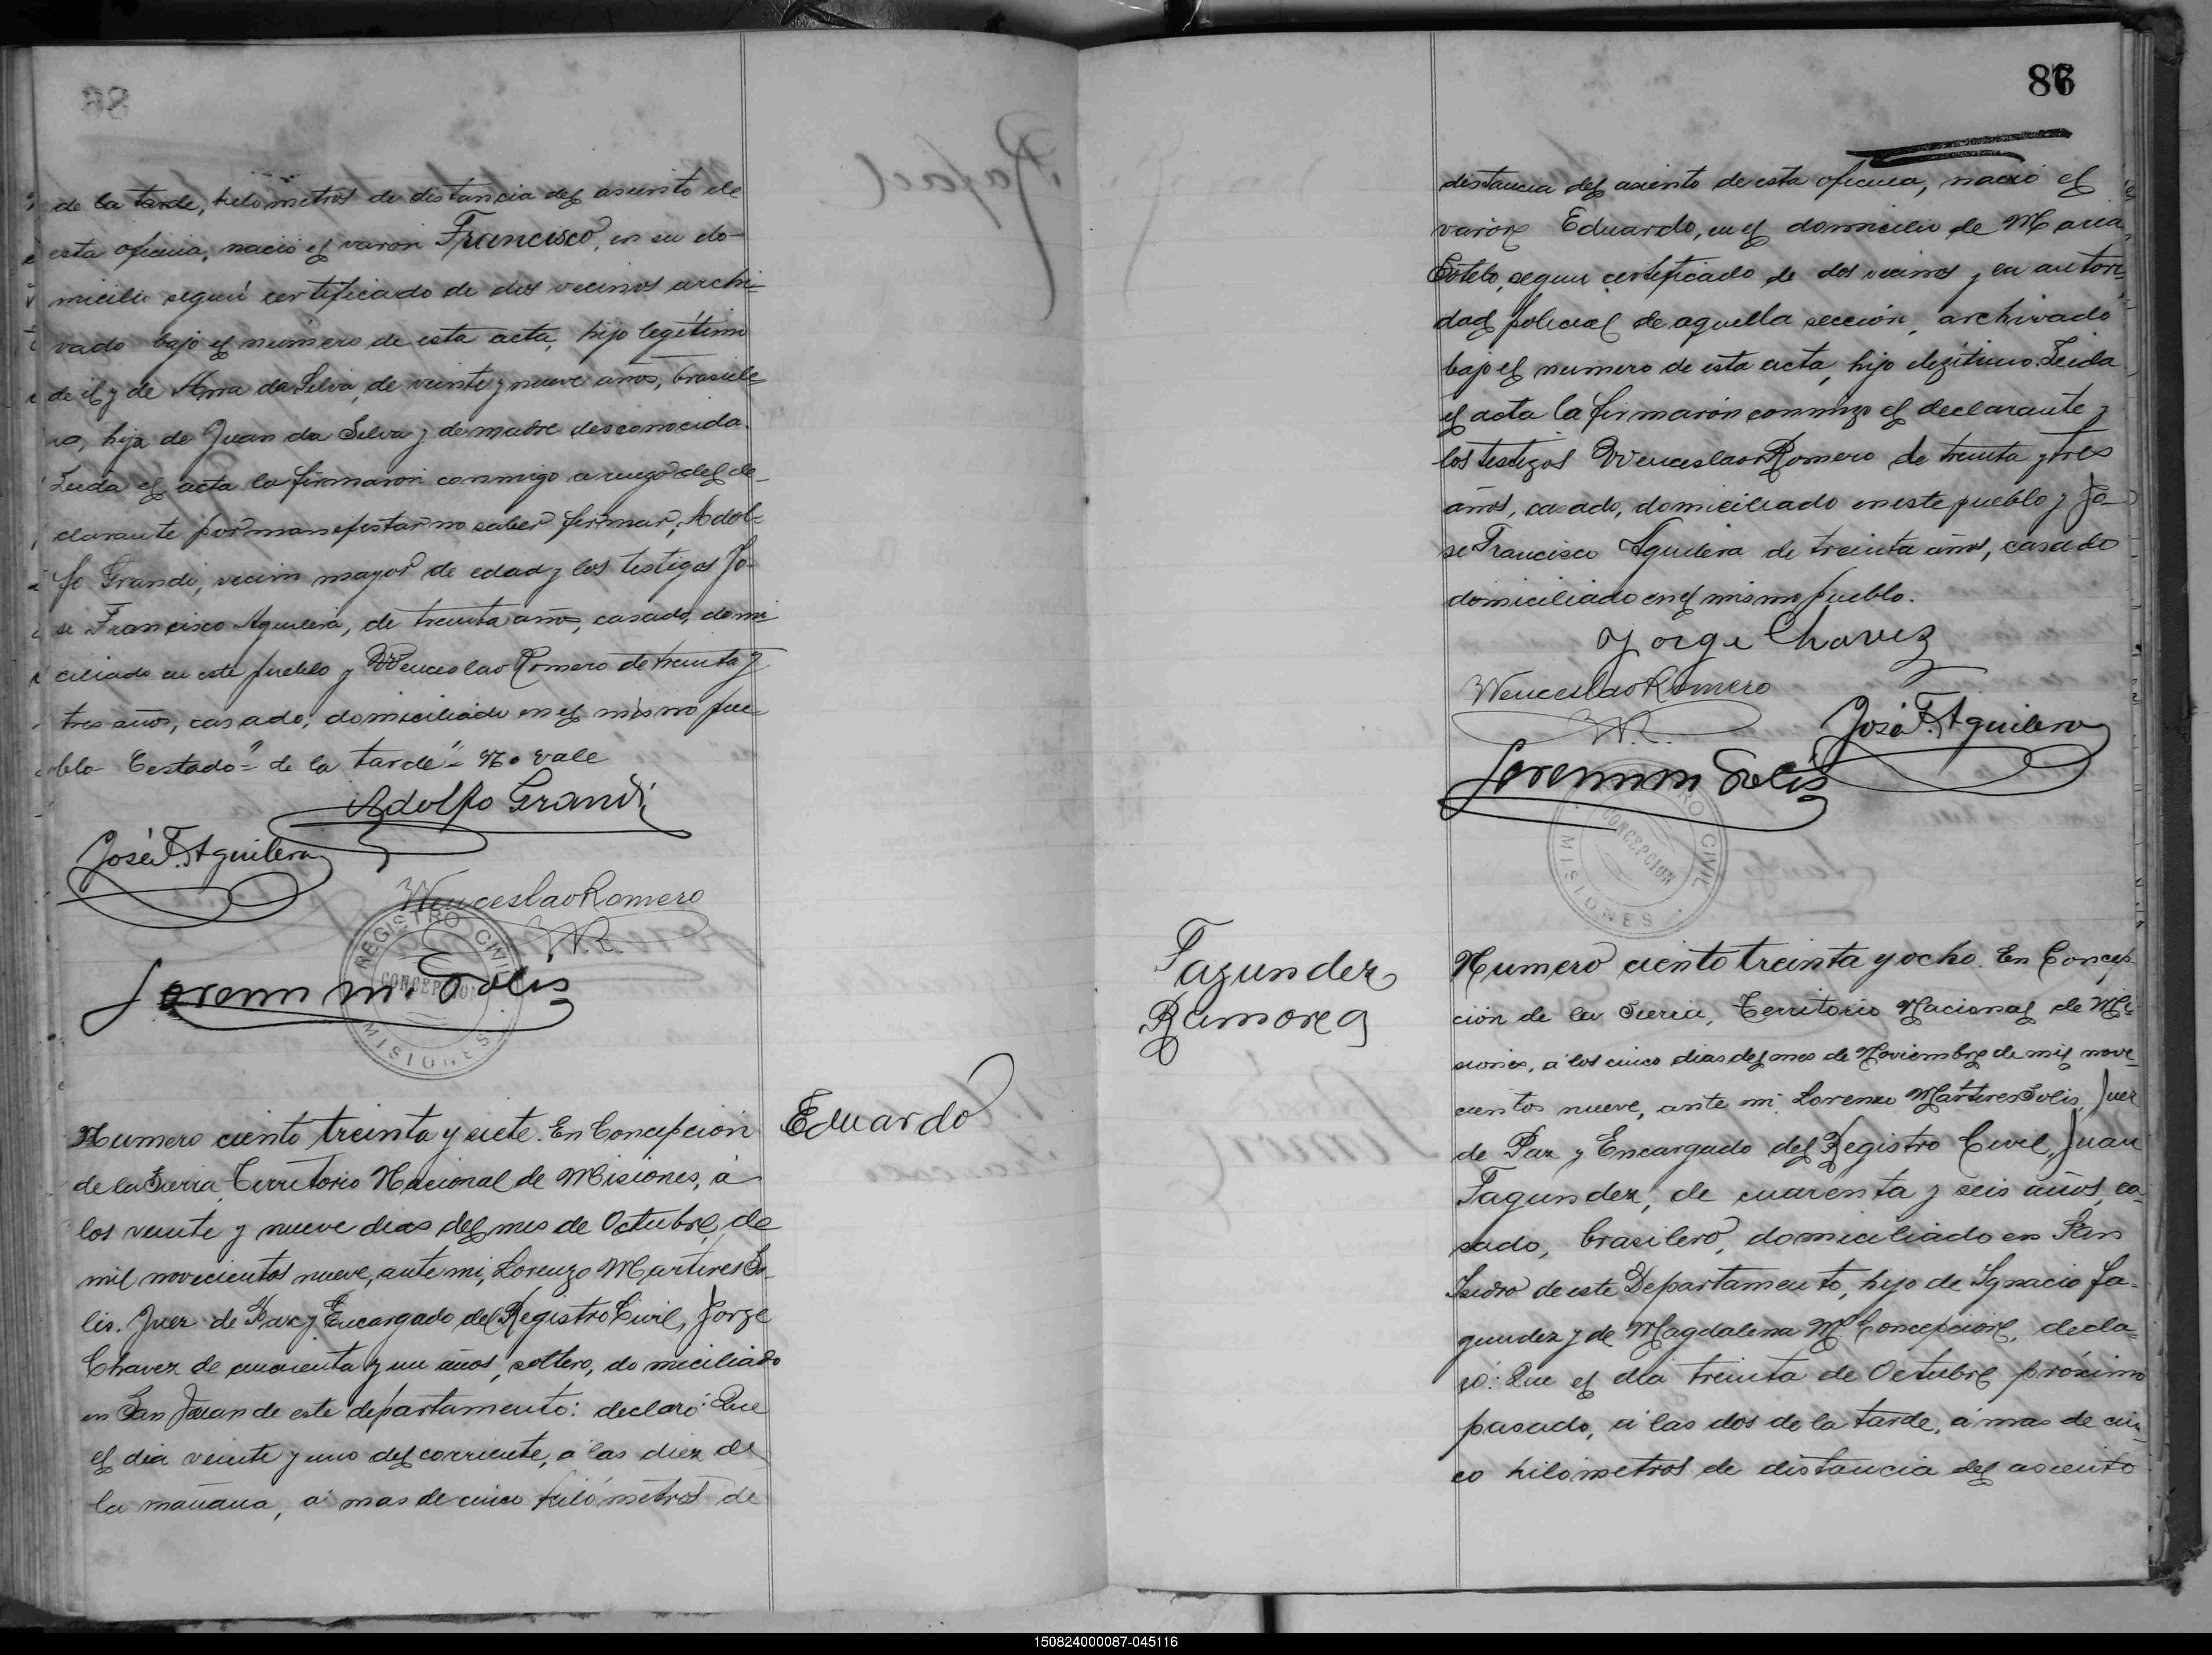 de la tarde, kilómetros de distancia del asiento de
esta oficina, nació el varon Francisco, en su do-
micilio según certificado de dos vecinos archi-
vado bajo el número de esta acta, hijo legítimo
de él y de Ana da Silva, de veinte y nueve años, brasile-
ra, hija de Juan da Silva y de madre desconocida.
Leida el acta la firmaron conmigo a ruego del de-
clarante por manifestar no saber firmar, Adol-
fo Grandi, vecino mayor de edad y los testigos Jo-
se Francisco Aguilera, de treinta años, casado, domi
ciliado en este pueblo y Wenceslao Romero de treinta y
tres años, casado, domiciliado en el mismo pue
blo Testado "de la tarde" No vale
Adolfo Grandi
José F. Aguilera
Wenceslao Romero
W.R.
REGISTRO CIVIL
CONCEPCION
MISIONES
Lorenzo M. Solis
Numero ciento treinta y siete. En Concepcion
de la Sierra, Territorio Nacional de Misiones, á
los veinte y nueve dias del mes de Octubre de
mil novecientos nueve, ante mi, Lorenzo Martires So-
lis. Juez de Paz y Encargado del Registro Civil, Jorge
Chavez de cuarenta y un años, soltero, domiciliado
en San Juan de este departamento: declaró: Que
el dia veinte y uno del corriente, á las diez de
la mañana, á mas de cinco kilómetros de
Eduardo
86
distancia del asiento de esta oficina, nació el
varón Eduardo, en el domicilio de Maria
Sotelo, segun certificado de dos vecinos y la autori-
dad policial de aquella sección, archivado
bajo el numero de esta acta, hijo ilegítimo. Leida
el acta la firmarón conmigo el declarante y
los testigos Wenceslao Romero de treinta y tres
años, casado, domiciliado en este pueblo y Jo-
se Francisco Aguilera de treinta años, casado
domiciliado en el mismo pueblo.
Jorge Chavez
Wenceslao Romero
W.R.
José F. Aguilera
Lorenzo M. Solis
REGISTRO CIVIL
CONCEPCION
MISIONES
Fagundez
Ramona
Numero ciento treinta y ocho. En Concep-
ción de la Sierra, Territorio Nacional de Mi-
siones, á los cinco dias del mes de Noviembre de mil nove-
cientos nueve, ante mi Lorenzo Martires Solis, Juez
de Paz y Encargado del Registro Civil, Juan
Fagundez, de cuarenta y seis años, ca-
sado, brasilero, domiciliado en San
Isidro de este Departamento, hijo de Ignacio Fa-
gundez y de Magdalena Mª Concepcion, decla-
ró: Que el dia treinta de Octubre próximo
pasado, á las dos de la tarde, á mas de cin-
co kilómetros de distancia del asiento
150824000087-045116